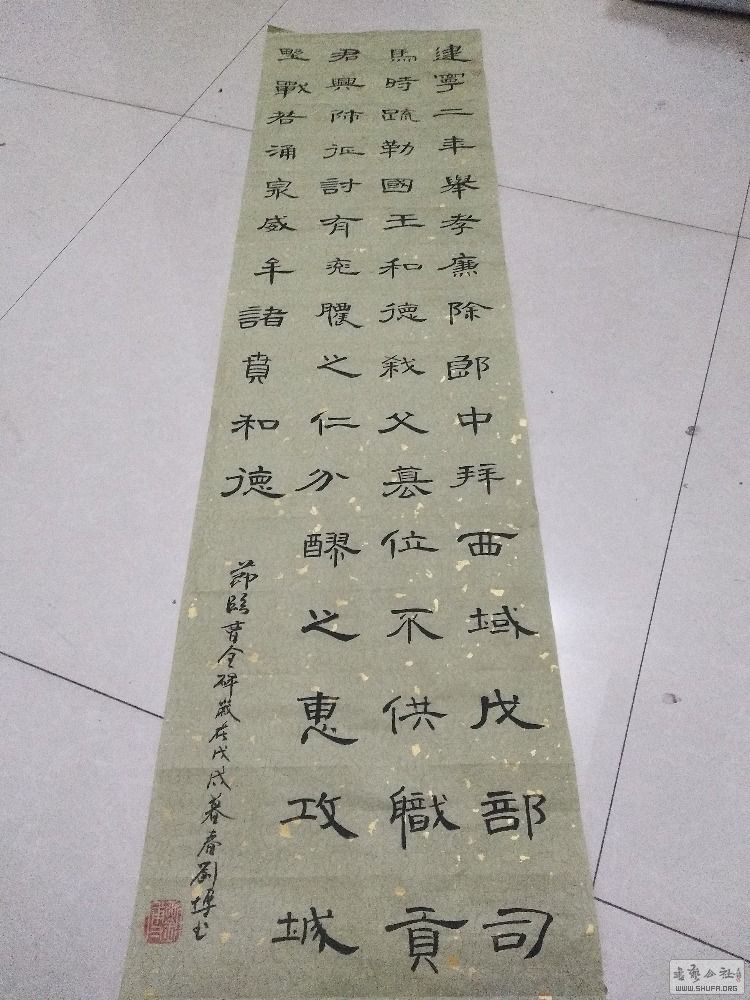 建寧二年舉孝廉除郎中拜西域戊部司
馬時疏勒國王和德弒父篡位不供職貢
君興師征討有兗膿之仁分醪之惠攻城
野戰若涌泉威牟諸賁和德
節臨曹全碑歲在戊戌暮春劉书
书艺公社
WWW.SHUFA.ORG